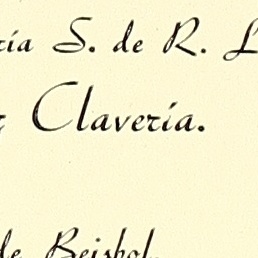 ría S. de R. L
z Clavería.
de Beisbol.